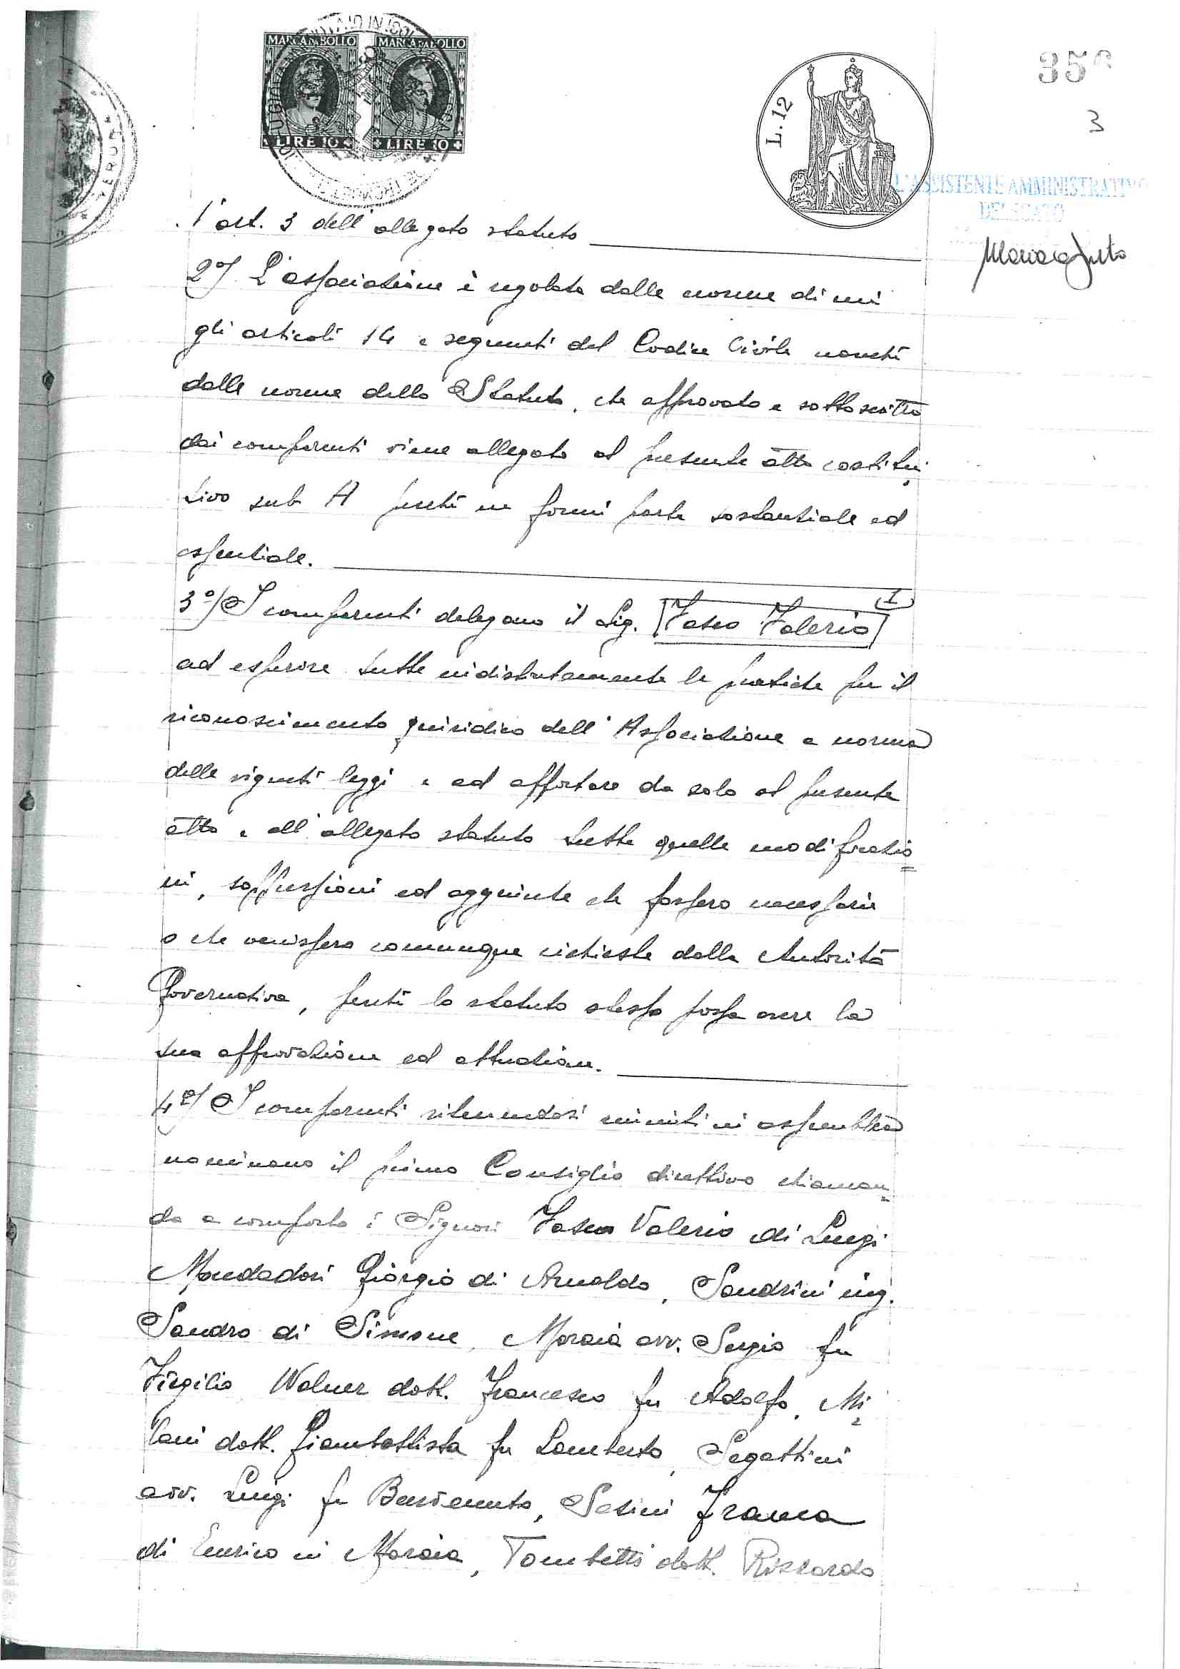 MARCA DA BOLLO MARCA DA BOLLO
LIRE 10 LIRE 10
L. 12
356
3
L'ASSISTENTE AMMINISTRATIVO
DELEGATO
VERONA
l'art. 3 dell'allegato statuto
2°/ L'associazione è regolata dalle norme di cui
gli articoli 14 e seguenti del Codice Civile nonché
dalle norme dello Statuto, che approvato e sottoscritto
dai comparenti viene allegato al presente atto costitu=
tivo sub A perché ne formi parte sostanziale ed
essenziale.
3°/ I comparenti delegano il Sig. [Fasco Valerio] (I)
ad esperire tutte indistintamente le pratiche per il
riconoscimento giuridico dell'Associazione a norma
delle vigenti leggi e ad apportare da solo al presente
atto e all'allegato statuto tutte quelle modificazio=
ni, soppressioni ed aggiunte che fossero necessarie
o che venissero comunque richieste dalla Autorità
Governativa, perché lo statuto stesso possa avere la
sua approvazione ed attuazione.
4°/ I comparenti ritenendosi riuniti in assemblea
nominano il primo Consiglio direttivo chiaman=
do a comporlo i Signori Valerio di Luigi
Mondadori Giorgio di Arnoldo, Sandrini ing.
Sandro di Simone, Moraia avv. Sergio fu
Virgilio, Walner dott. Francesco fu Adolfo, Mi=
lani dott. Giambattista fu Lamberto, Segattini
avv. Luigi fu Benvenuto, Sesini Franca
di Enrico in Moraia, Tombetti dott. Rizzardo